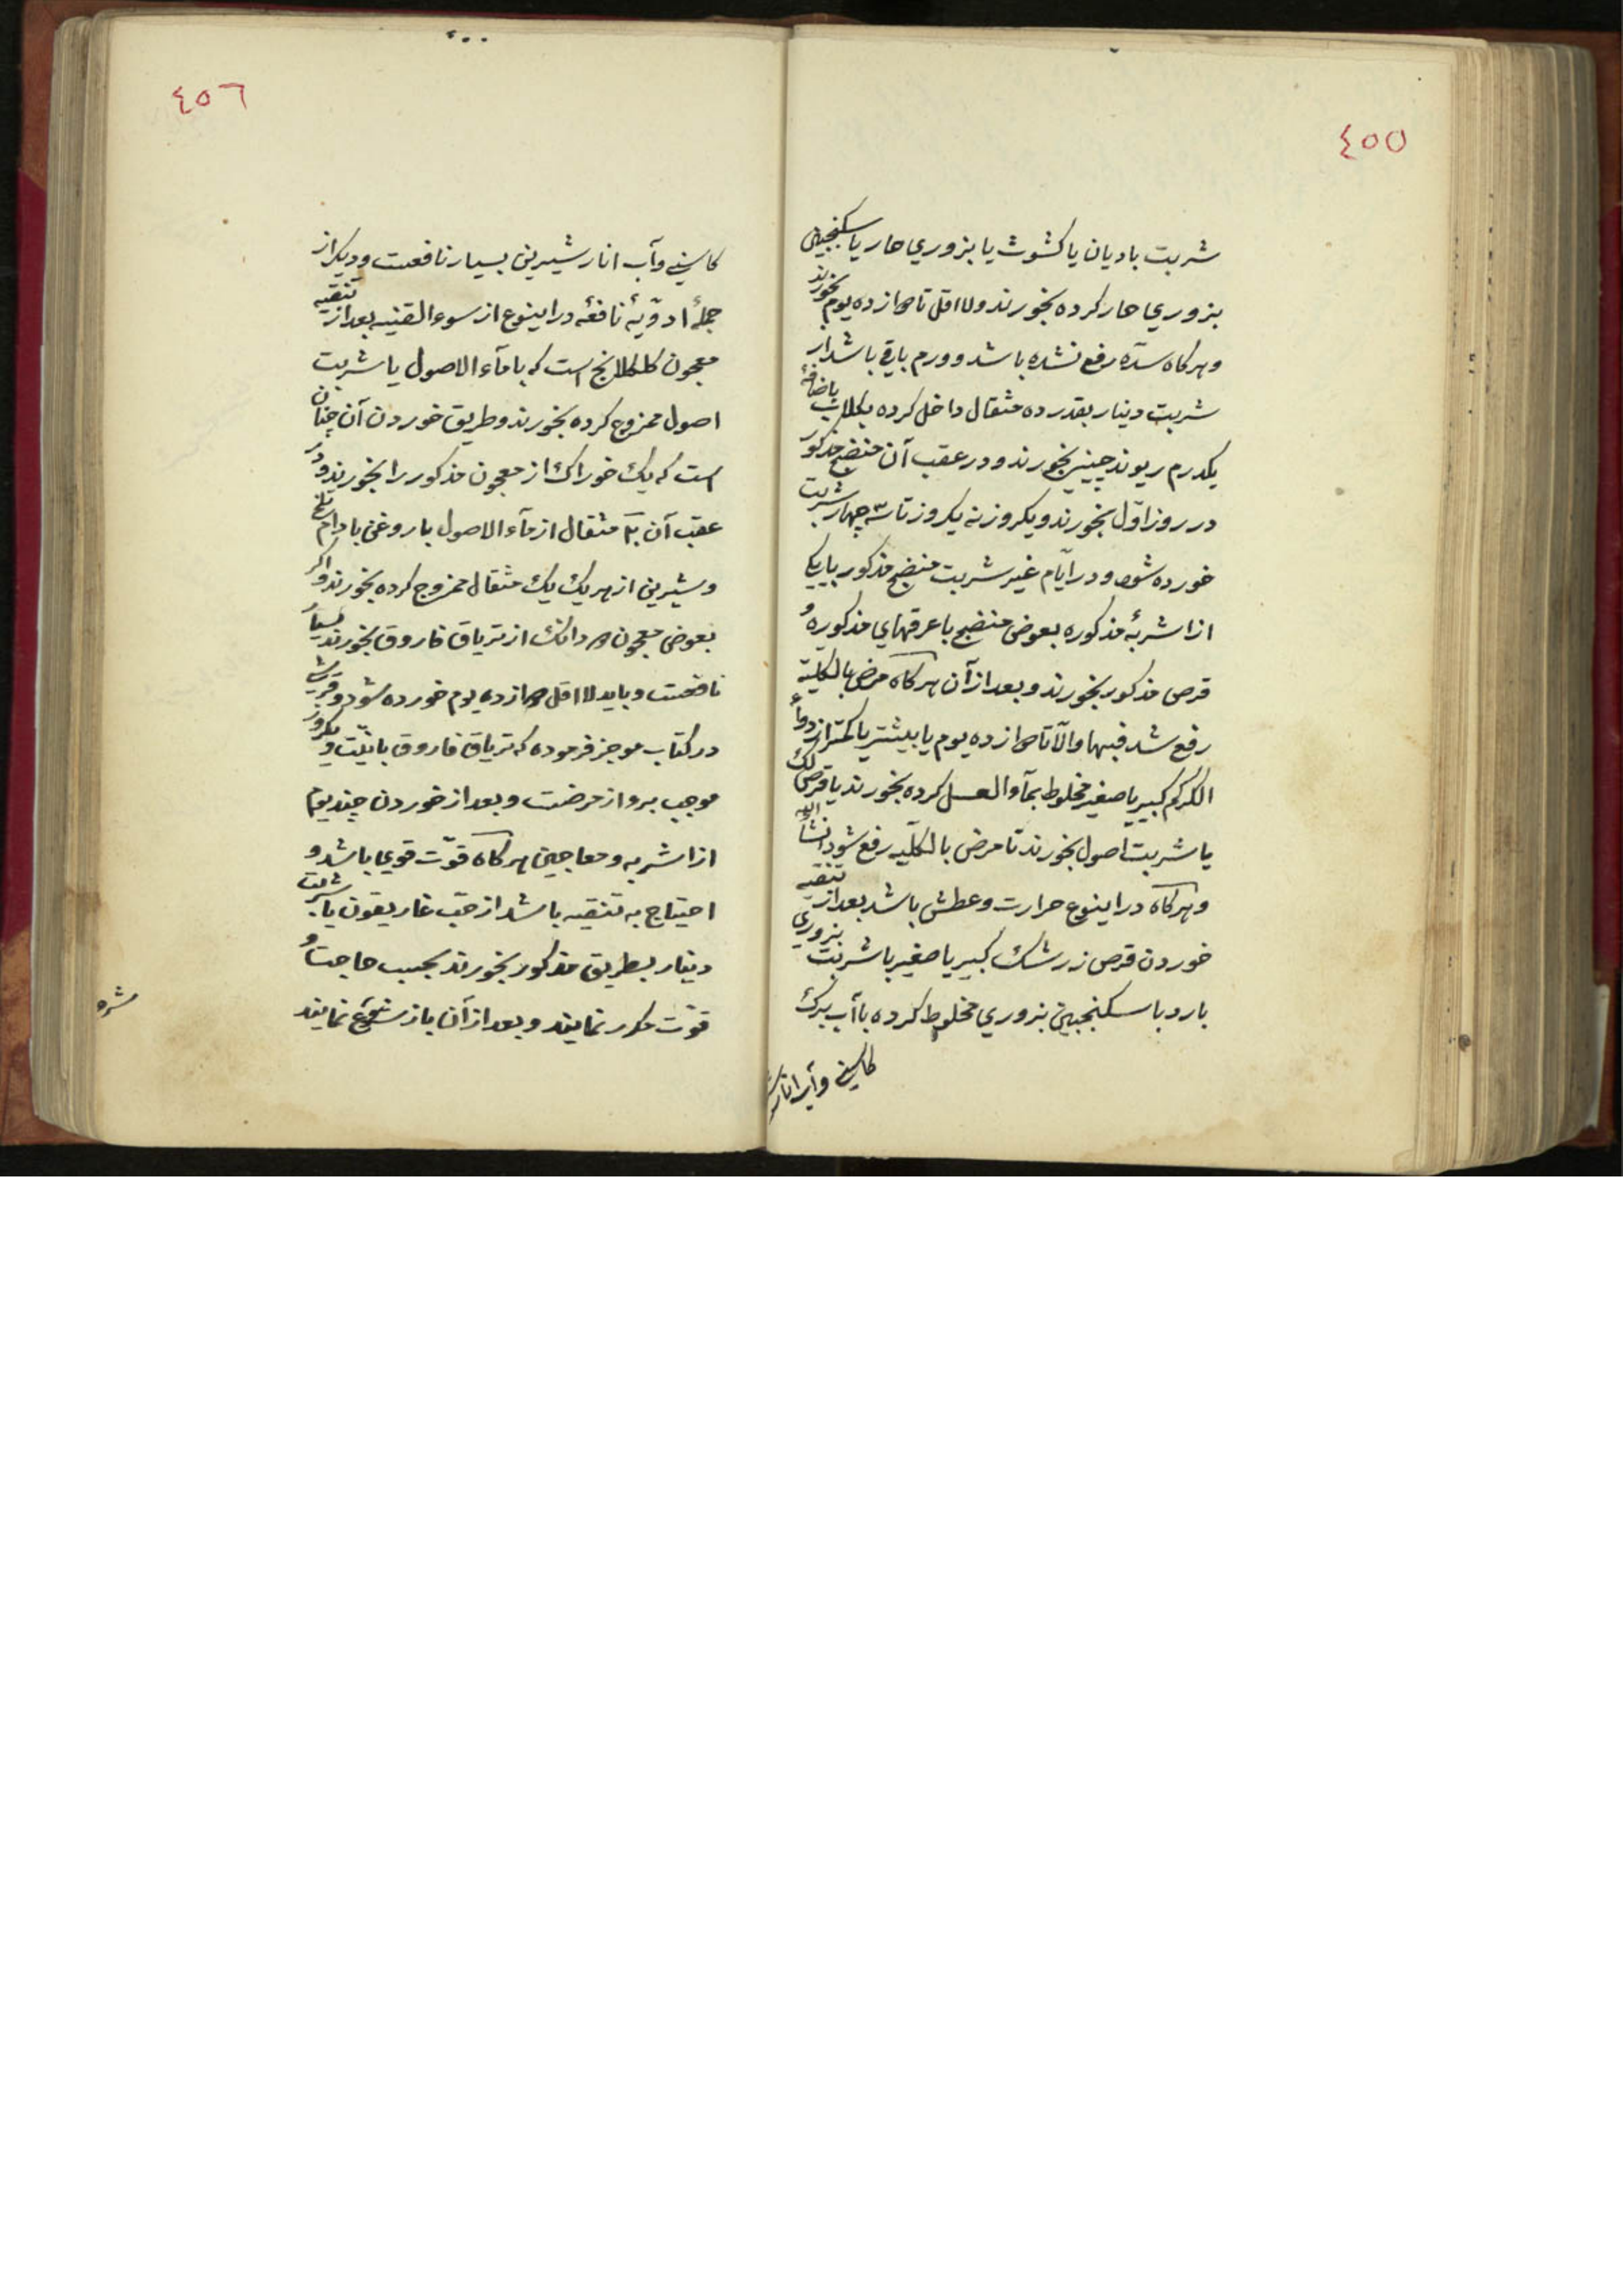 ٤٥٥
شربت باديان يا كشوث يا بزوري حار يا سكنجبين
بزوري حار كرده بخورند ولا اقل تا دوازده يوم بخورند
و هركاه سدّه رفع نشده باشد و ورم باقي باشد از
شربت دينار بقدر ده مثقال داخل كرده بكلاب باضافهٔ
يكدرم ريوند چيني بخورند و در عقب آن منضج مذكور
در روز اوّل بخورند و يكروز نه يكروز تا سه چهار شربت
خورده شود و در ايّام غير شربت منضج مذكور با يكي
از اشربهٔ مذكوره بعوض منضج با عرقهاي مذكوره و
قرص مذكور بخورند و بعد از آن هركاه مرض بالكليّه
رفع شد فبها والّا تا دوازده يوم يا بيشتر يا كمتر از دواء
الكركم كبير يا صغير مخلوط بمآء العسل كرده بخورند يا قرص لك
يا شربت اصول بخورند تا مرض بالكلّيه رفع شود انشأ الله
و هركاه در اينوع حرارت و عطش باشد بعد از تنقيه
خوردن قرص زرشك كبير يا صغير با شربت بزوري
بارد با سكنجبين بزوري مخلوط كرده با آب برك
كاسني و آب انار
٤٥٦
كاسني و آب انار شيرين بسيار نافعست و ديكر از
جملهٔ ادويّهٔ نافعهٔ در اينوع از سوء القنيه بعد از تنقيه
معجون كلكلانج است كه با مآء الاصول يا شربت
اصول ممزوج كرده بخورند و طريق خوردن آن چنان
است كه يك خوراك از معجون مذكور را بخورند و در
عقب آن مثقال از مآء الاصول با روغن بادام تلخ
و شيرين از هر يك يك مثقال ممزوج كرده بخورند و اكر
بعوض معجون دو دانك از ترياق فاروق بخورند بسيار
نافعست و بايد لا اقل دوازده يوم خورده شود و قرشي
در كتاب موجز فرموده كه ترياق فاروق
موجب برو از مرضست و بعد از خوردن چند يوم
از اشربه و معاجين هركاه قوّت قوي باشد و
احتياج به تنقيه باشد از حبّ غاريقون يا شربت
دينار بطريق مذكور بخورند بحسب حاجت و
قوّت مكرر نمايند و بعد از آن باز شروع نمايند